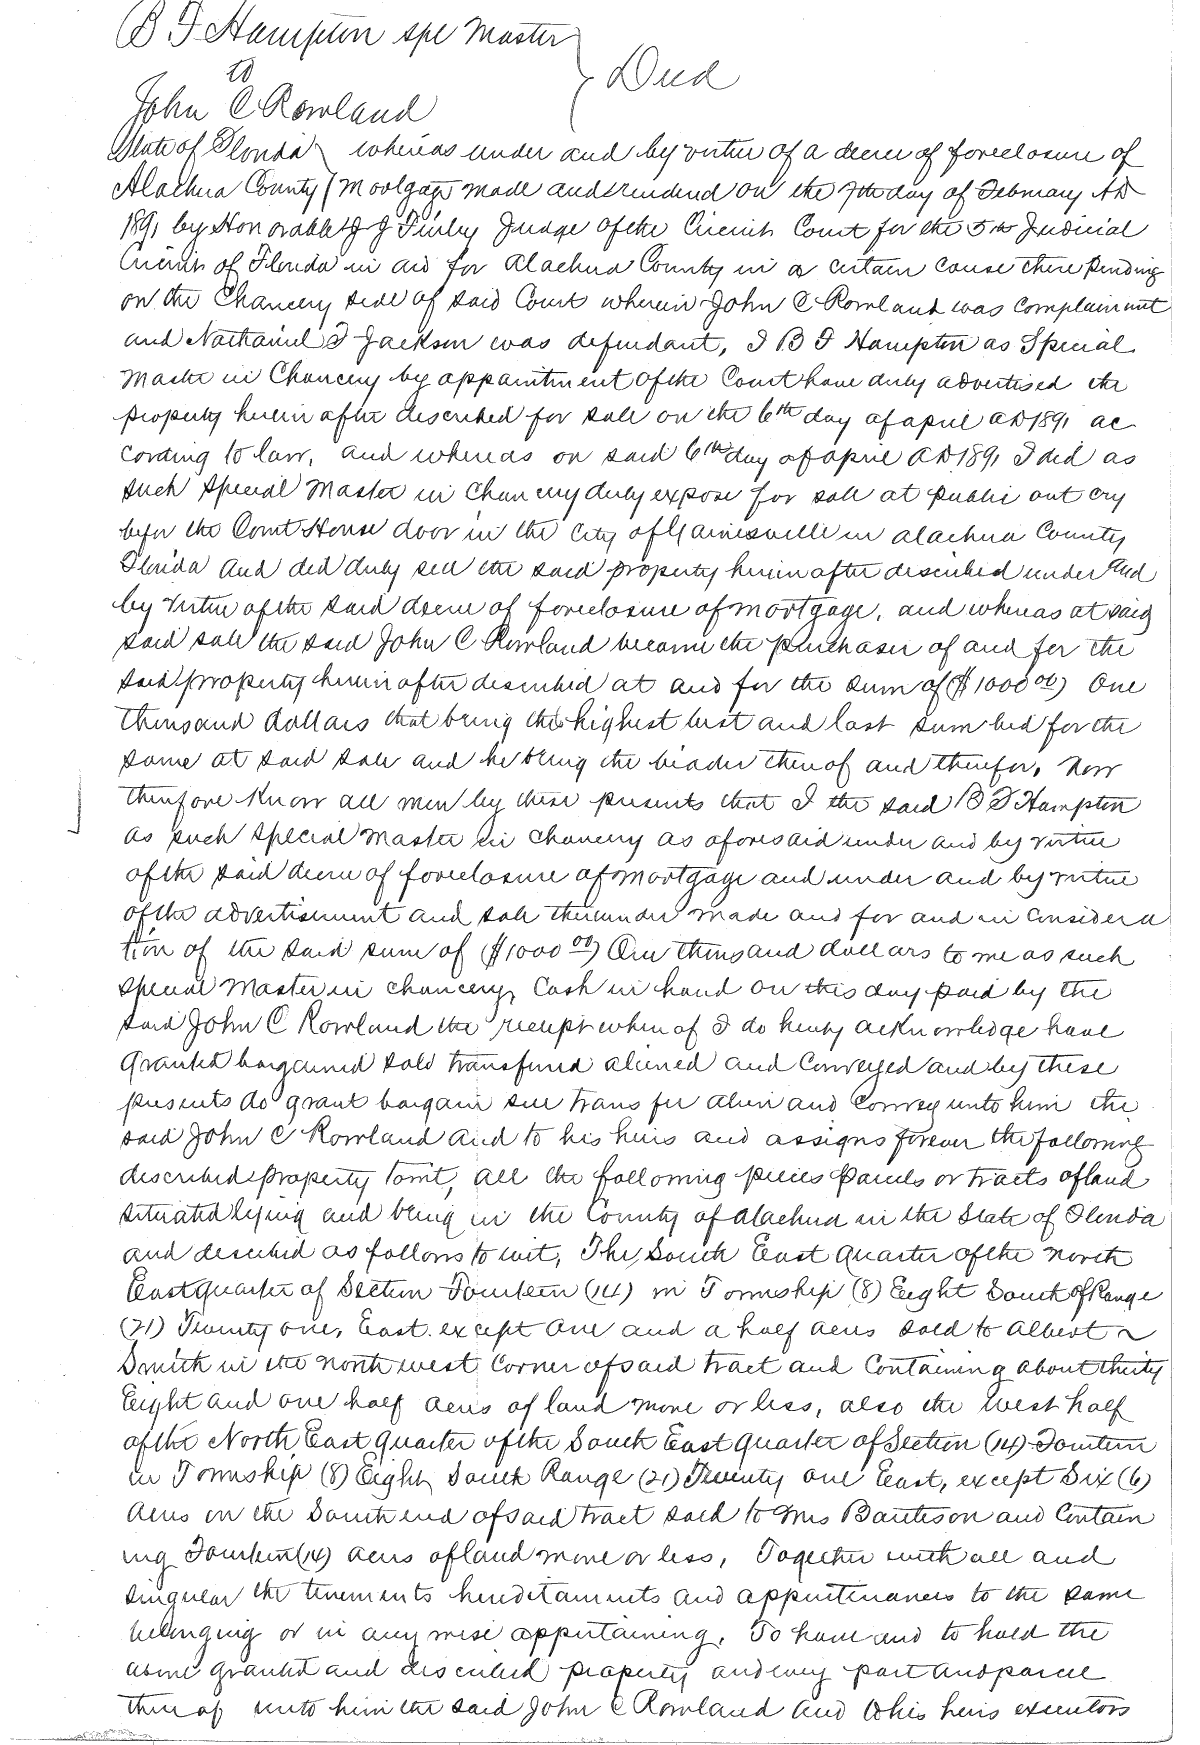 B F Hampton spl Master
to
Deed
John C Rowland
State of Florida whereas under and by virtue of a decree of foreclosure of
Alachua County Mortgage made and rendered on the 7th day of February AD
1891 by Honorable J J Finley Judge of the Circuit Court for the 5th Judicial
Circuit of Florida in aid for Alachua County in a certain cause there pending
on the Chancery side of said Court wherein John C Rowland was complainant
and Nathaniel F Jackson was defendant, I B F Hampton as Special
Master in Chancery by appointment of the Court have duly advertised the
property herein after described for sale on the 6th day of april AD 1891 ac
cording to law, and whereas on said 6th day of april AD 1891 I did as
such Special Master in Chancery duly expose for sale at public out cry
before the Court House door in the City of Gainesville in Alachua County
Florida and did duly sell the said property herein after described under and
by virtue of the said decree of foreclosure of mortgage, and whereas at said
said sale the said John C Rowland became the purchaser of and for the
said property herein after described at and for the sum of ($1000 00) One
thousand dollars that being the highest best and last sum bid for the
same at said sale and he being the bidder thereof and therefor, Now
therefore Know all men by these presents that I the said B F Hampton
as such special Master in chancery as aforesaid under and by virtue
of the said decree of foreclosure of mortgage and under and by virtue
of the advertisement and sale thereunder made and for and in considera
tion of the said sum of ($1000 00) One thousand dollars to me as such
special Master in chancery, Cash in hand on this day paid by the
said John C Rowland the receipt when of I do hereby acknowledge have
granted bargained sold transferred aliened and Conveyed and by these
presents do grant bargain sell trans fer alien and Convey unto him the
said John C Rowland and to his heirs and assigns forever the following
described property towit, all the following pieces parcels or tracts of land
situated lying and being in the County of Alachua in the State of Florida
and described as follows to wit, The South East quarter of the North
East quarter of Section Fourteen (14) in Township (8) Eight South of Range
(21) Twenty one, East except one and a half acres sold to Albert
Smith in the north west Corner of said tract and Containing about thirty
Eight and one half acres of land more or less, also the West half
of the North East quarter of the South East quarter of Section (14) Fourteen
in Township (8) Eight South Range (21) Twenty one East, except Six (6)
acres on the South end of said tract sold to Mrs and Contain
ing Fourteen (14) acres of land more or less, Together with all and
singular the tenements hereditaments and appurtenances to the same
belonging or in any wise appertaining, To have and to hold the
above granted and described property and every part and parcel
there of unto him the said John C Rowland and to his heirs executors